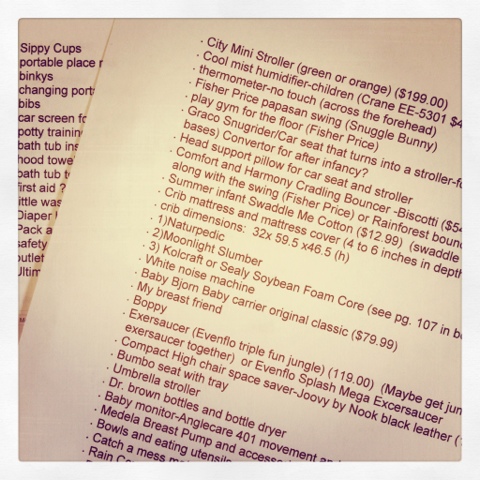 Sippy Cups
portable place
binkys
changing
bibs
car screen
potty
bath tub
hood
bath tub
first aid ?
little
Diaper
Pack a
safety
outlet
· City Mini Stroller (green or orange) ($199.00)
· Cool mist humidifier-children (Crane EE-5301
· thermometer-no touch (across the forehead)
· Fisher Price papasan swing (Snuggle Bunny)
· play gym for the floor (Fisher Price)
· Graco Snugrider/Car seat that turns into a
bases) Convertor for after infancy?
· Head support pillow for car seat and stroller
· Comfort and Harmony Cradling Bouncer -Biscotti
along with the swing (Fisher Price) or Rainforest
· Summer infant Swaddle Me Cotton ($12.99) (swaddle
· Crib mattress and mattress cover (4 to 6 inches in depth
crib dimensions: 32x 59.5 x46.5 (h)
· 1)Naturpedic
· 2)Moonlight Slumber
· 3) Kolcraft or Sealy Soybean Foam Core (see pg. 107 in
· White noise machine
· Baby Bjorn Baby carrier original classic ($79.99)
· My breast friend
· Boppy
· Exersaucer (Evenflo triple fun jungle) (119.00) (Maybe get
exersaucer together) or Evenflo Splash Mega Excersaucer
· Compact High chair space saver-Joovy by Nook black leather
· Bumbo seat with tray
· Umbrella stroller
· Dr. brown bottles and bottle dryer
· Baby monitor-Anglecare 401 movement
· Medela Breast Pump and
· Bowls and eating utensils
· Catch a mess
· Rain